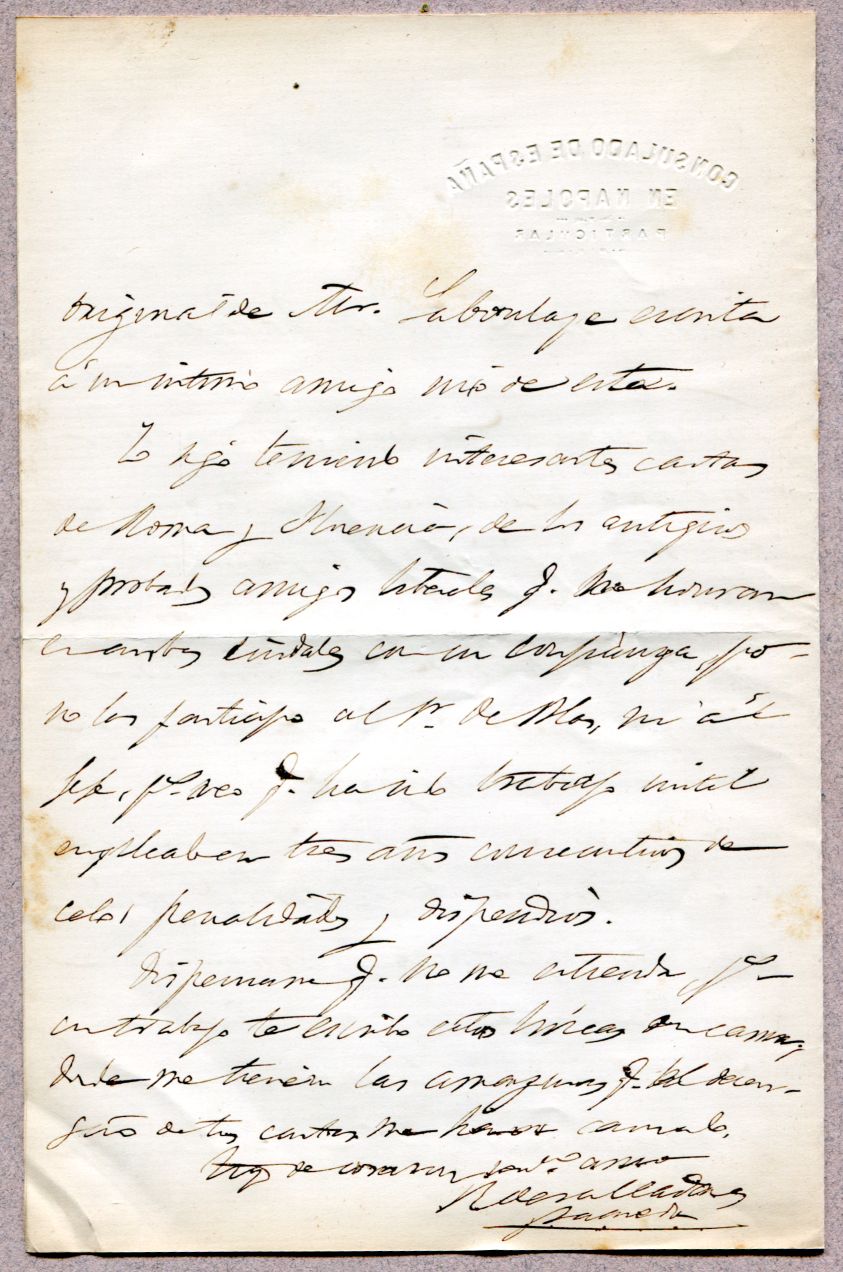 CONSULADO DE ESPAÑA
EN NAPOLES
PARTICULAR
original de Mr. Laboulaye escrita
á un intimo amigo mio de esta.
Yo sigo teniendo interesantes cartas
de Roma y Florencia, de los antiguos
y probados amigos liberales q. me honran
en ambas ciudades con su confianza, pe-
no los participo al Sr. de Blas, ni á él
pr. veo q. ha sido trabajo inutil
emplear tres años consecutivos de
celo, penalidades y dispendios.
Dispensame q. no me estienda, pr.
con trabajo te escribo estas lineas en cama,
donde me tienen las amarguras q. el decen-
de tus cartas me han causado.
Tuyo de corazon amigo